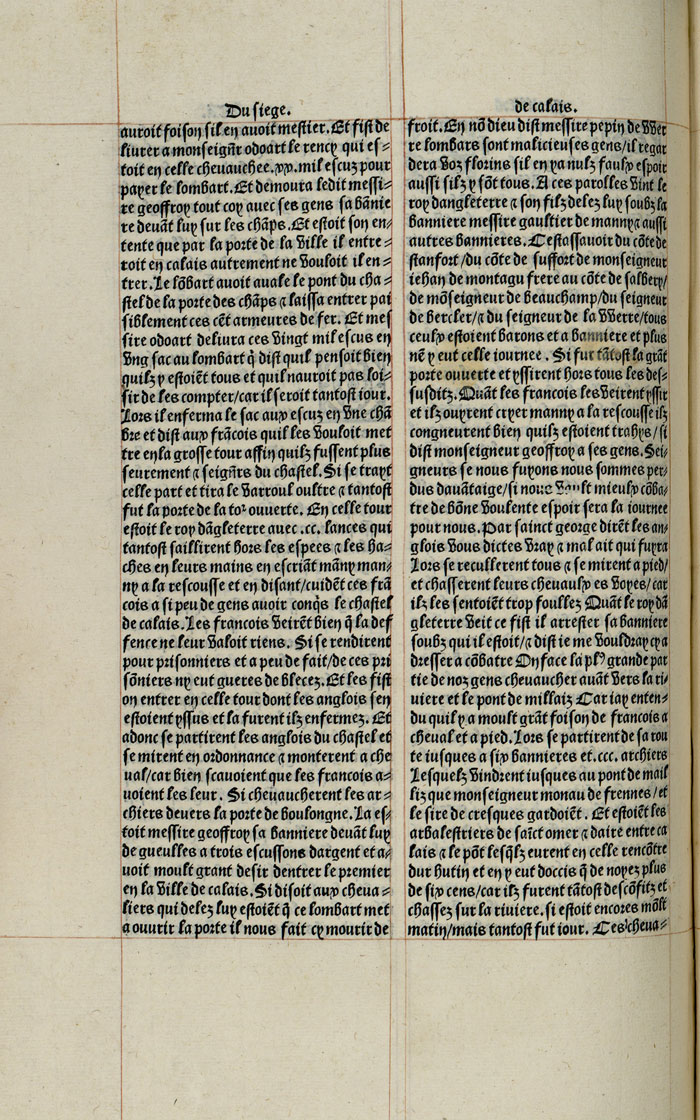 Du siege.
auroit foison sil en auoit mestier. Et fist de
liurer a monseignr̄ odoart le rency qui es-
toit en celle cheuauchee .xx. mil escuz pour
payer le lombart. Et demoura ledit messi-
re geoffroy tout coy auec ses gens sa bānie
re deuāt luy sur les chāps. Et estoit son en-
tente que par la porte de la ville il entre-
roit en calais autrement ne vouloit il en-
trer. Le lōbart auoit auale le pont du cha-
stel de la porte des chāps ⁊ laissa entrer pai
siblement ces cēt armeures de fer. Et mes
sire odoart deliura ces vingt mil escus en
vng sac au lombart q̄ dist quil pensoit bien
quilz y estoiēt tous et quil nauroit pas loi-
sir de les compter/car il seroit tantost iour.
Lors il enferma le sac aux escuz en vne chā
bre et dist aux frācois quil les vouloit met
tre en la grosse tour affin quilz fussent plus
seurement ⁊ seignr̄s du chastel. Si se trayt
celle part et tira le varroul oultre ⁊ tantost
fut la porte de la toʳ ouuerte. En celle tour
estoit le roy dāgleterre auec .cc. lances qui
tantost saillirent hors les espees ⁊ les ha-
ches en leurs mains en escriāt māny man-
ny a la rescousse et en disant/cuidēt ces frā
cois a si peu de gens auoir conq̄s le chastel
de calais. Les francois veirēt bien q̄ la def
fence ne leur valoit riens. Si se rendirent
pour prisonniers et a peu de fait/de ces pri
sōniers ny eut gueres de blecez. Et les fist
on entrer en celle tour dont les anglois sen
estoient yssus et la furent ilz enfermez. Et
adonc se partirent les anglois du chastel et
se mirent en ordonnance ⁊ monterent a che
ual/car bien scauoient que les francois a-
uoient les leur. Si cheuaucherent les ar-
chiers deuers la porte de boulongne. La es-
toit messire geoffroy sa banniere deuāt luy
de gueulles a trois escussons dargent et a-
uoit moult grant desir dentrer le premier
en la ville de calais. Si disoit aux cheua-
liers qui delez luy estoiēt q̄ ce lombart met
a ouurir la porte il nous fait cy mourir de
de calais.
froit. En nō dieu dist messire pepin de wer
re lombars sont malicieuses gens/il regar
dera voz florins sil en ya nulz faulx espoir
aussi silz y sōt tous. A ces parolles vint le
roy dangleterre ⁊ son filz delez luy soubz la
banniere messire gaultier de manny ⁊ aussi
autres bannieres. Cestassauoir du cōte de
stanfort/du cōte de suffort de monseigneur
iehan de montagu frere au cōte de salbery/
de mōseigneur de beauchamp/du seigneur
de bercler/⁊ du seigneur de la werre/tous
ceulx estoient barons et a banniere et plus
nē y eut celle iournee. Si fut tātost la grāt
porte ouuerte et yssirent hors tous les des-
susditz. Quāt les francois les veirent yssir
et ilz ouyrent cryer manny a la rescousse ilz
congneurent bien quilz estoient trahys/si
dist monseigneur geoffroy a ses gens. Sei-
gneurs se nous fuyons nous sommes per-
dus dauātaige/si nous vault mieulx cōba-
tre de bōne voulente espoir sera la iournee
pour nous. Par sainct george dirēt les an-
glois vous dictes vray ⁊ mal ait qui fuyra
Lors se recullerent tous ⁊ se mirent a pied/
et chasserent leurs cheuaulx es voyes/car
ilz les sentoiēt trop foullez Quāt le roy dā
gleterre veit ce fist il arrester sa banniere
soubz qui il estoit/⁊ dist ie me vouldray cy a
dresser a cōbatre On face la plꝰ grande par
tie de noz gens cheuaucher auāt vers la ri-
uiere et le pont de millaiz Car iay enten-
du quil y a moult grāt foison de francois a
cheual et a pied. Lors se partirent de sa rou
te iusques a six bannieres et .ccc. archiers
Lesquelz vindrent iusques au pont de mail
liz que monseigneur monau de frennes/et
le sire de cresques gardoiēt. Et estoiēt les
arbalestriers de saīct omer ⁊ daire entre ca
lais ⁊ le pōt lesq̄lz eurent en celle rencōtre
dur hutin et en y eut doccis q̄ de noyez plus
de six cens/car ilz furent tātost descōfitz et
chassez sur la riuiere. si estoit encores mōlt
matin/mais tantost fut iour. Ces cheua-